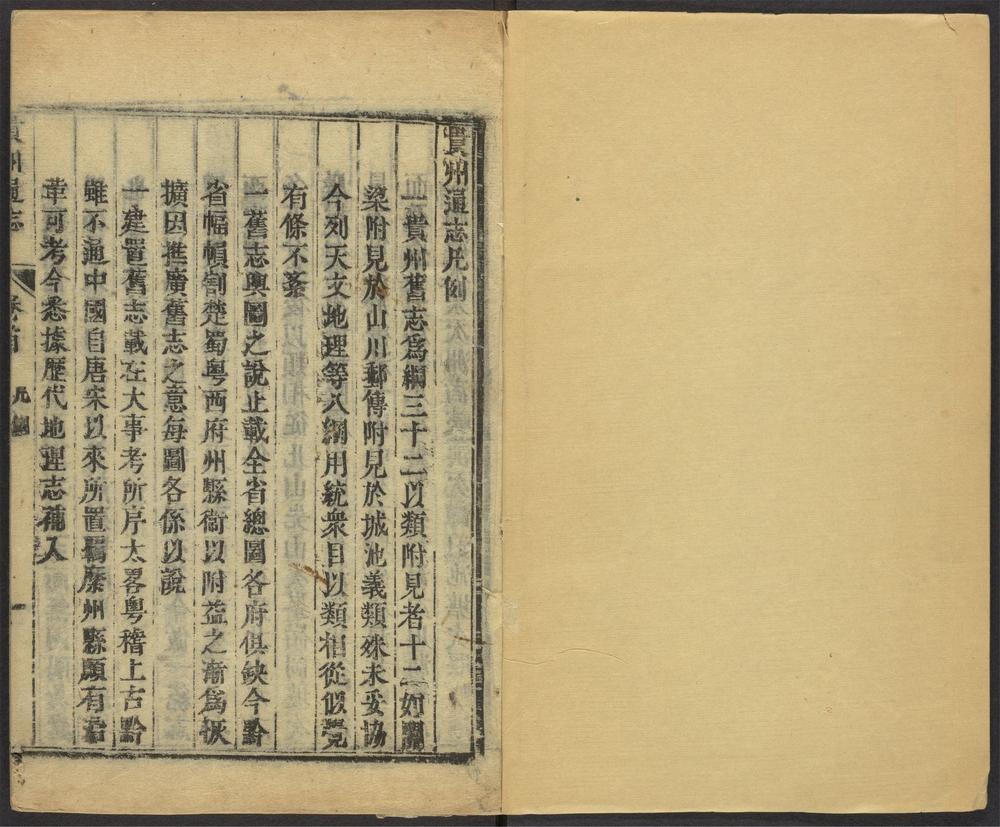 貴州通志凡例
一貴州舊志爲綱三十二以類附見者十二如關
梁附見於山川郵傳附見於城池義類殊未妥協
今列天文地理等八綱用統衆目以類相從似覺
有條不紊
一舊志輿圖之說止載全省總圖各府俱缺今黔
省幅幀割楚蜀粵西府州縣衛以附益之漸爲恢
擴因推廣舊志之意每圖各係以說
一建置舊志載在大事考所序太畧粵稽上古黔
雖不通中國自唐宋以來所置羈縻州縣願有沿
革可考今悉據歷代地理志補入
貴州通志
卷首
凡例
一